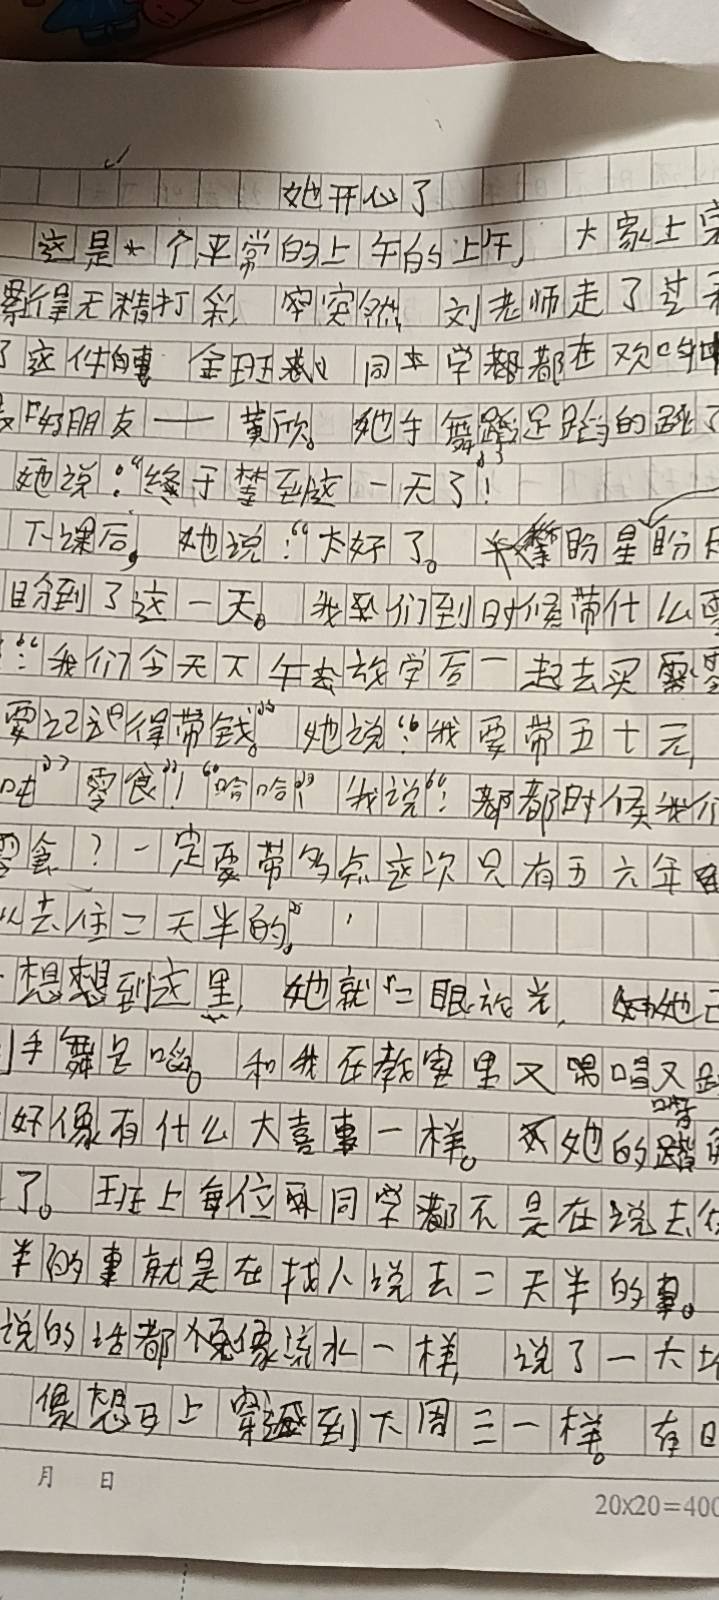 她开心了
这是一个平常的上午的上午，大家上完
累得无精打彩 突然 刘老师走了进来
了这件事 全班 同学都都在欢呼
好朋友——黄欣。她手舞蹈足蹈的跳了
她说：“终于等到这一天了！
下课后，她说：“太好了。盼星盼月
盼到了这一天。我们到时候带什么零
：“我们今天下午去放学后一起去买零
要记得带钱。”她说：“我要带五十元，
吨”零食”！“哈哈！”我说“：都都时候我们
零食？一定要带多点这次只有五六年
以去住二天半的。”
想想到这里，她就“二眼放光，她已
手舞足蹈。和我在教室里又唱唱又跳
好像有什么大喜事一样。她的嘴角
了。班上每位同学都不是在说去住
半的事就是在找人说去二天半的事。
说的话都像流水一样，说了一大堆
像想马上穿越到下周三一样。在
月 日
20x20=400